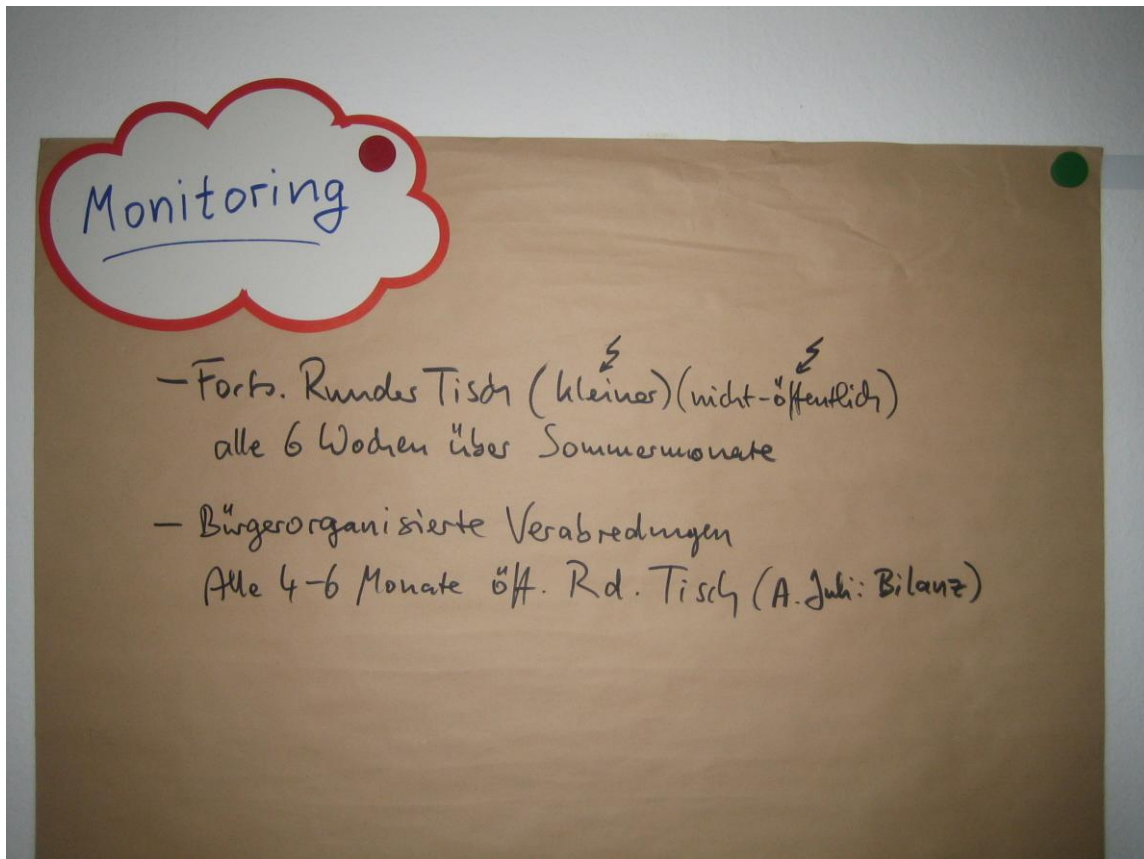 Monitoring
- Forts. Runder Tisch (kleiner) (nicht-öffentlich)
alle 6 Wochen über Sommermonate
- Bürgerorganisierte Verabredungen
Alle 4-6 Monate öff. Rd. Tisch (A. Juli: Bilanz)